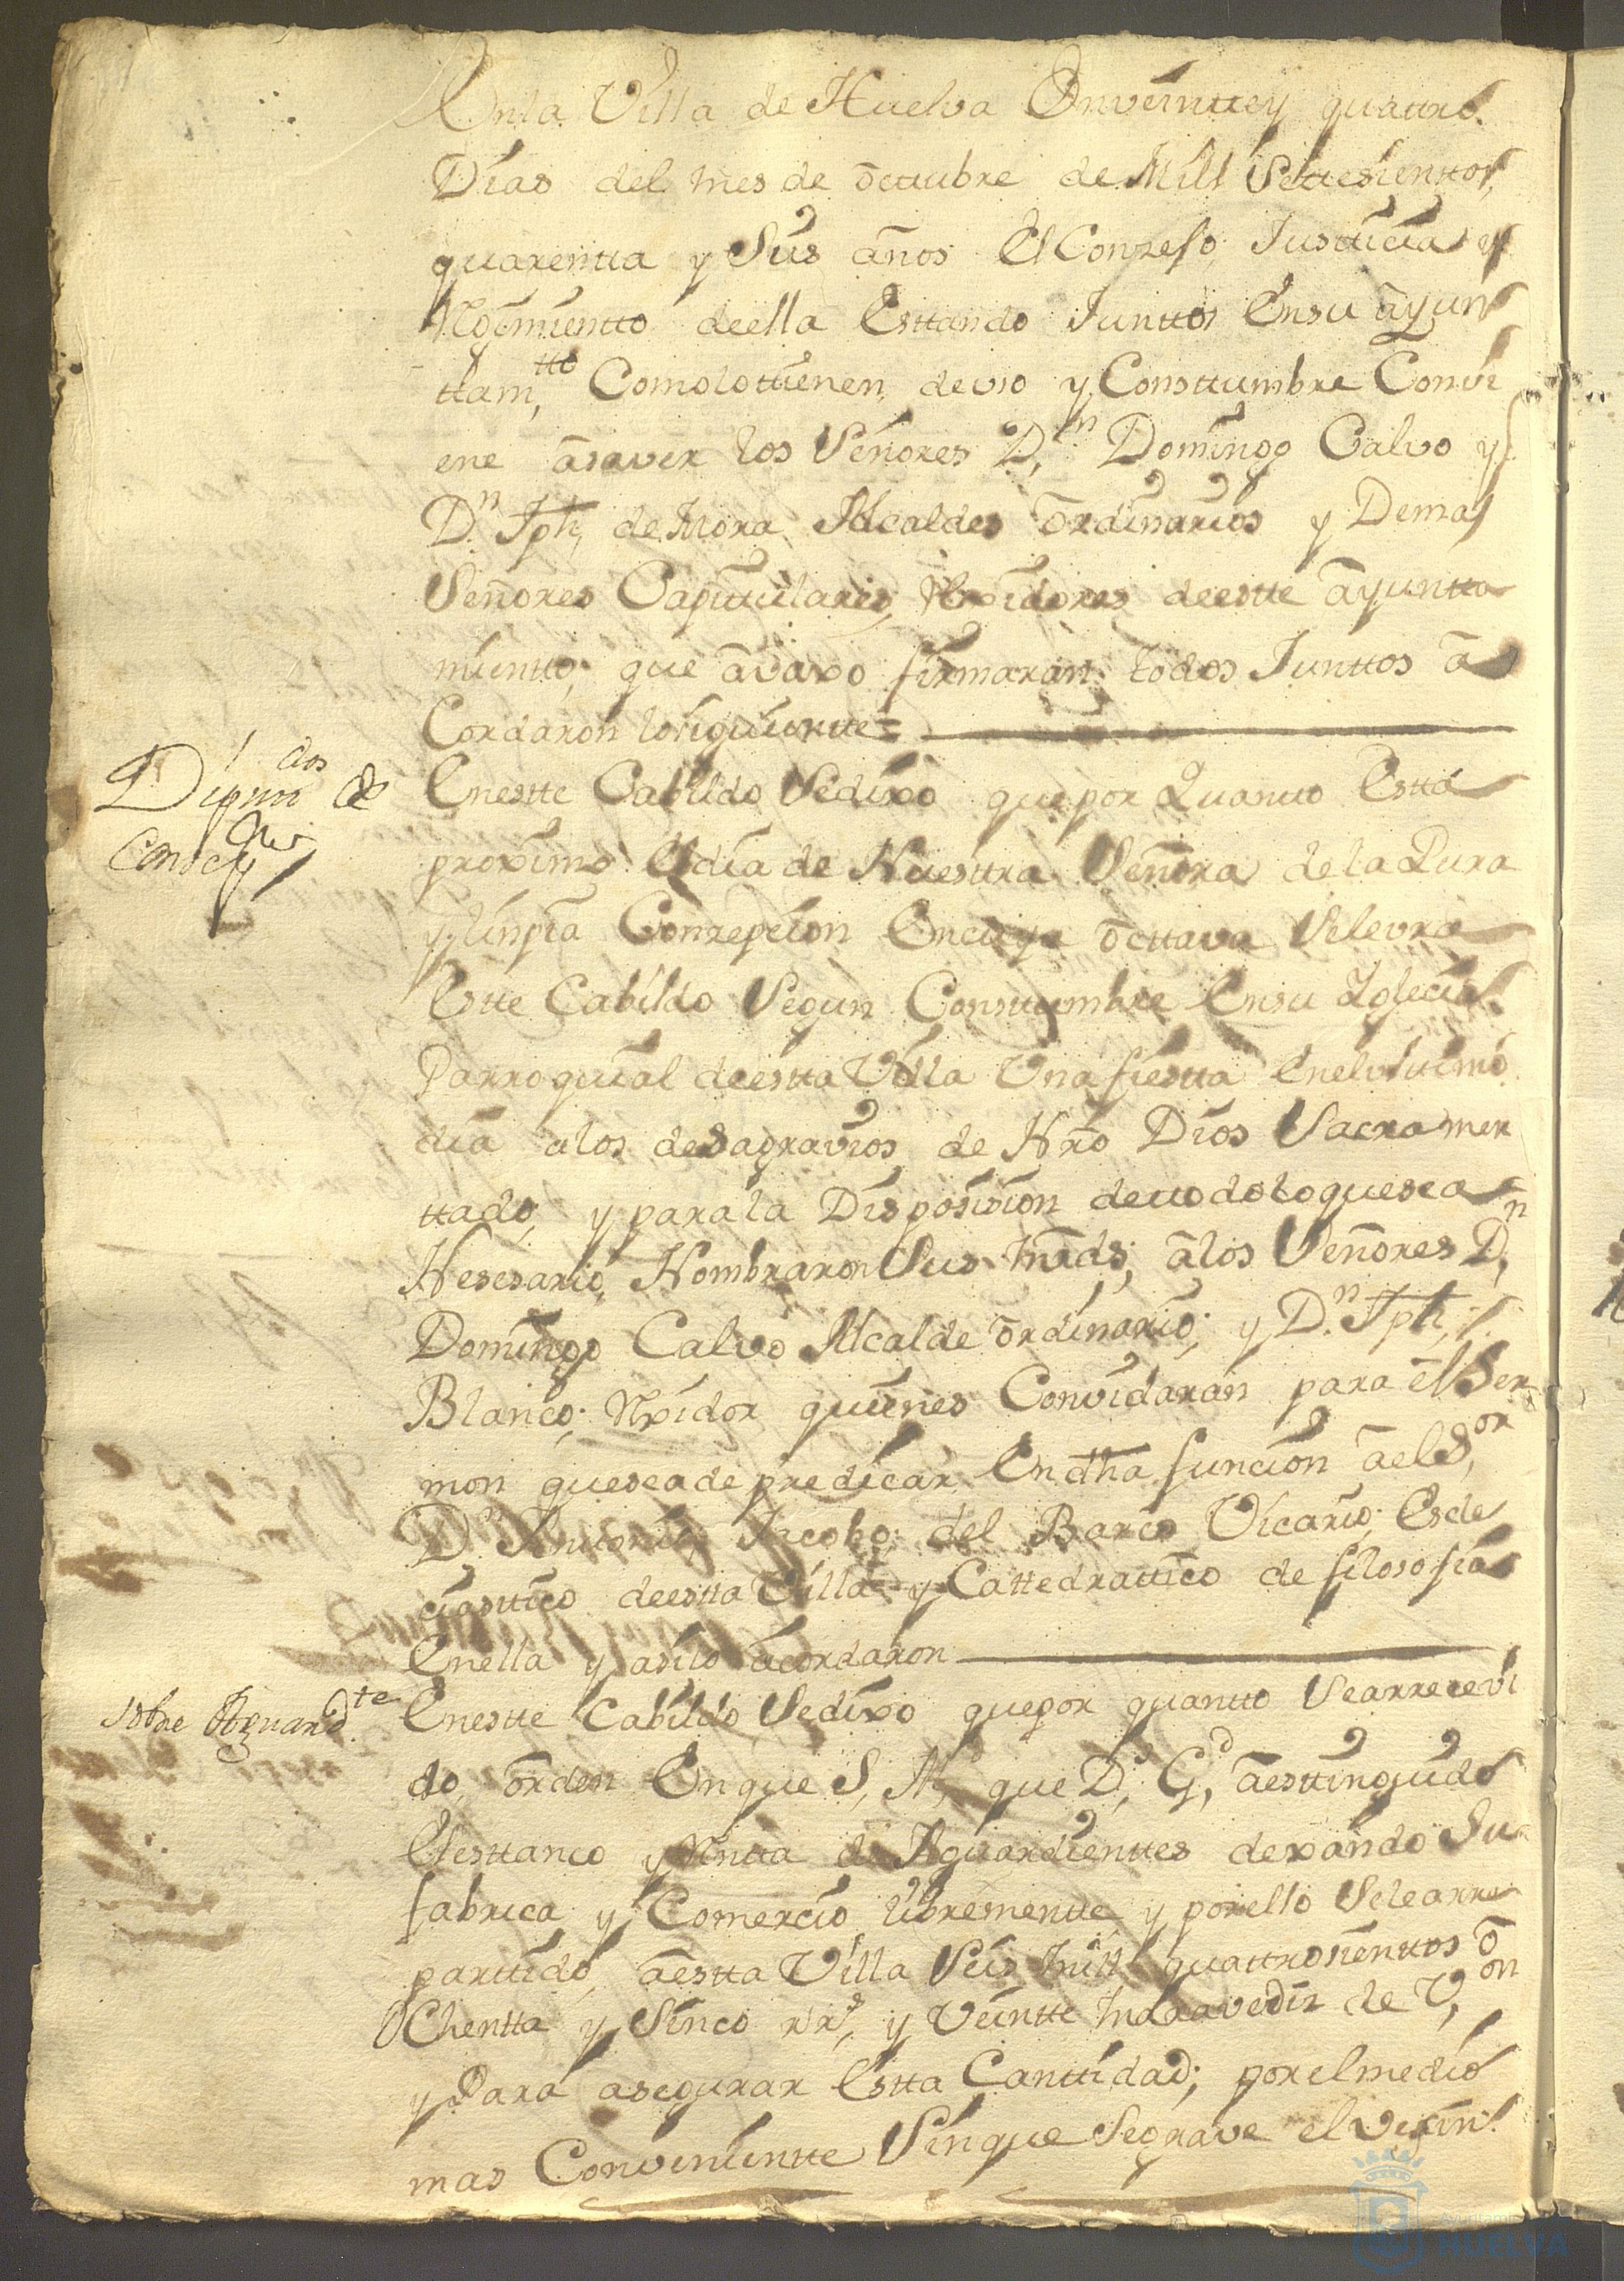 Enla Villa de Huelva Enveinttey quattro
Dias del mes de octtubre de Mill Settesienttos
quarentta y Seis años El Conzejo Justticia y
Rejimientto deella Esttando Junttos Ensu ayun
ttam,tto Comolottienen deuso y Consttumbre Convi
ene asaver los Señores D,n Domingo Calvo y
D.n Jph, de Mora Alcaldes ordinarios y Demas
Señores Capittulares, Rexidores deestte ayuntta
mientto, que avaxo firmaran todos Junttos a
Cordaron losiguientte=
Diputtados de
Concepn
Enestte Cabildo Sedixo quepor Quantto Estta
proximo Eldia de Nuesttra Señora de la Pura
y linpia Conzepcion Encuya octtava Selevra
Estte Cabildo Segun Consttumbre Ensu Yglecia
Parroquial deestta Villa Una fiestta Enelulttimo
dia alos desagravios de Nrō Dios Sacramen
ttado, y para la Disposision dettodoloquesea
Nesesario, Nombraron Sus mrds, alos Señores D,n
Domingo Calvo Alcalde ordinario; y D.n Jph,
Blanco; Rxidor quienes Convidaran para el Ser
mon queseade predicar Endhā funcion aelS,or
D.n Anttonio Jacobo, del Barco Vicario; Ecle
ciasttico deestta Villa y Cattedrattico de filosofia
Enella y asilo acordaron
sobre Aguardte
Enestte Cabildo Sedixo quepor quantto Searrecevi
do, orden Enque S, M, que D,s G,e aesttinguido
Elesttanco y Rentta de Aguardienttes dexando Su
fabrica y Comercio libremente y porello Selearre
parttido, aestta Villa Seis mill quattrosienttos o
Chentta y Sinco rrs, y Veintte maravedis de V,on
y Para asegurar Estta Canttidad; porelmedio
mas Convenientte Sinque Segrave el vesin
HUELVA